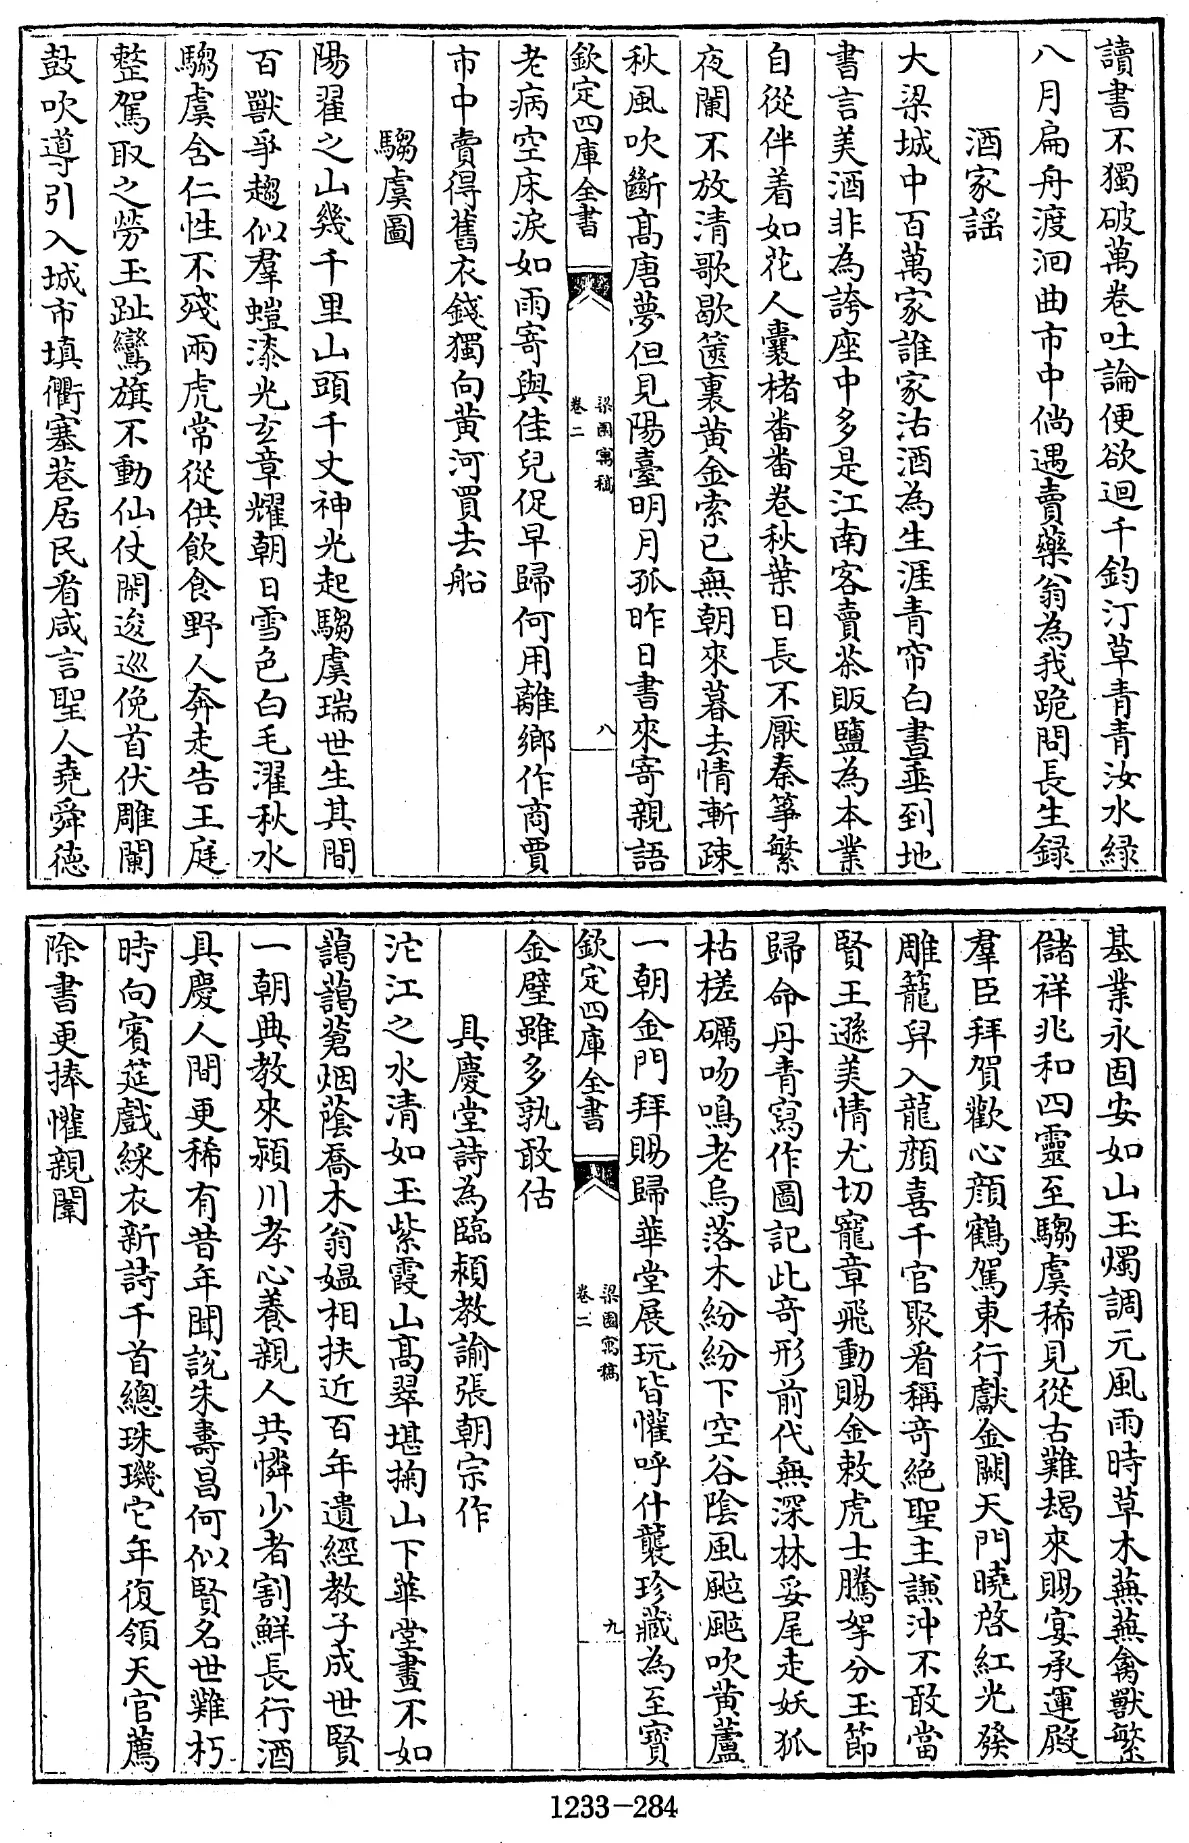 讀書不獨破萬卷吐論便欲迴千鈞汀草青青汝水緑
八月扁舟渡洄曲市中倘遇賣藥翁為我跪問長生録
酒家謡
大梁城中百萬家誰家沽酒為生涯青帘白晝垂到地
書言美酒非為誇座中多是江南客賣茶販鹽為本業
自從伴着如花人囊楮畨畨卷秋葉日長不厭秦筝繁
夜闌不放清歌歇篋裏黄金索已無朝來暮去情漸疎
秋風吹斷髙唐夢但見陽臺明月孤昨日書來寄親語
欽定四庫全書
梁園寓稿
卷二
八
老病空床淚如雨寄與佳兒促早歸何用離鄉作商賈
市中賣得舊衣錢獨向黄河買去船
騶虞圖
陽翟之山幾千里山頭千丈神光起騶虞瑞世生其間
百獸爭趨似羣螘漆光玄章耀朝日雪色白毛濯秋水
騶虞含仁性不殘兩虎常從供飲食野人奔走告王庭
整駕取之勞玉趾鸞旗不動仙仗閑逡巡俛首伏雕闌
鼓吹導引入城市填衢塞巷居民看咸言聖人堯舜德
基業永固安如山玉燭調元風雨時草木蕪蕪禽獸繁
儲祥兆和四靈至騶虞稀見從古難朅來賜宴承運殿
羣臣拜賀歡心顔鶴駕東行獻金闕天門曉啓紅光發
雕籠舁入龍顔喜千官聚看稱竒絶聖主謙沖不敢當
賢王遜美情尤切寵章飛動賜金敕虎士騰拏分玉節
歸命丹青寫作圖記此竒形前代無深林妥尾走妖狐
枯槎礪吻鳴老烏落木紛紛下空谷陰風颭颭吹黄蘆
一朝金門拜賜歸華堂展玩皆懽呼什襲珍藏為至寳
欽定四庫全書
梁園寓稿
卷二
九
金璧雖多孰敢估
具慶堂詩為臨潁教諭張朝宗作
沱江之水清如玉紫霞山髙翠堪掬山下華堂畫不如
藹藹蒼烟蔭喬木翁媼相扶近百年遺經教子成世賢
一朝典教來潁川孝心養親人共憐少者割鮮長行酒
具慶人間更稀有昔年聞說朱壽昌何似賢名世難朽
時向賓筵戲綵衣新詩千首總珠璣它年復領天官薦
除書更捧懽親闈
1233-284